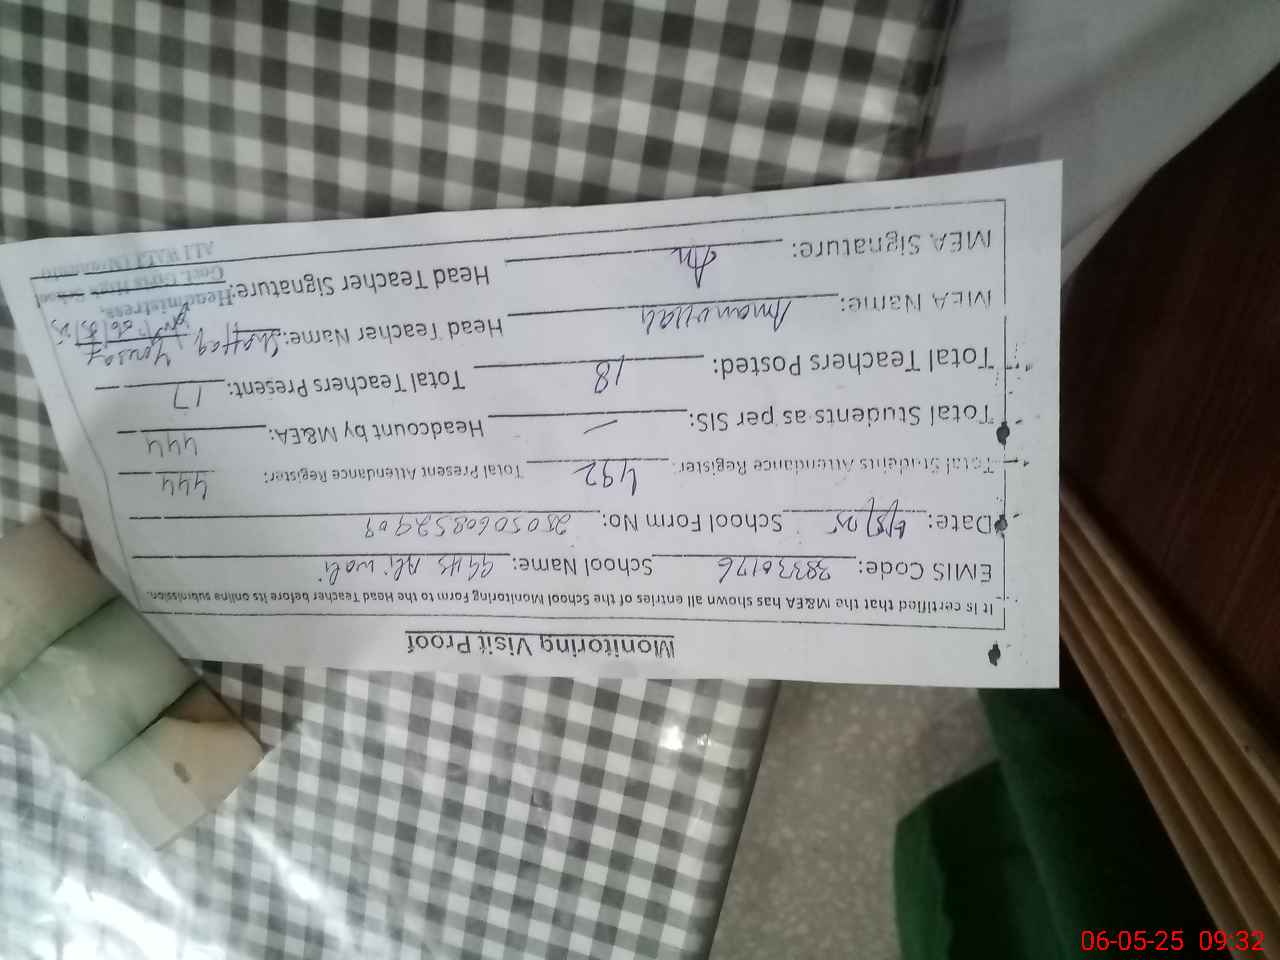 Monitoring Visit Proof
It is certified that the M&EA has shown all entries of the School Monitoring Form to the Head Teacher before its online submission.
EMIS Code: 38330176 School Name: GGHS Ali wali
Date: 6/5/25 School Form No: 2505060852909
Total Students Attendance Register: 492 Total Present Attendance Register: 444
Total Students as per SIS: — Headcount by M&EA: 444
Total Teachers Posted: 18 Total Teachers Present: 17
MEA Name: Amanullah Head Teacher Name: Yousaf
MEA Signature: Head Teacher Signature:
06/5/25
Headmistress,
Govt. Girls High School
ALI WALI
06-05-25 09:32